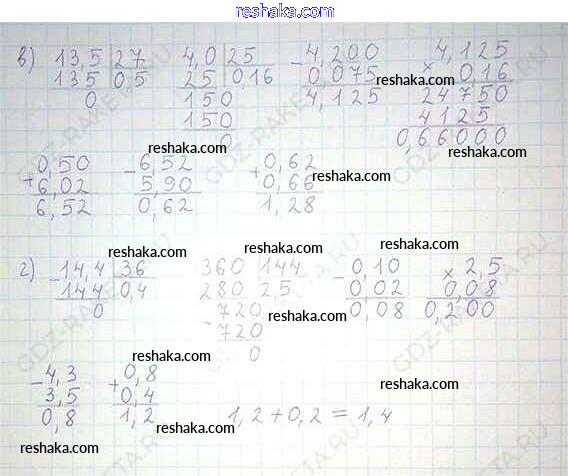 reshaka.com
в) 13,5 | 27   4,0 | 25   - 4,200   4,125
135 | 0,5   25 | 0,16   0,075   × 0,16
0   150   4,125   24750
150   4125
0   0,66000
reshaka.com
reshaka.com
reshaka.com
0,50   - 6,52   + 0,62
+ 6,02   5,90   0,66
6,52   0,62   1,28
reshaka.com
reshaka.com
г) - 14,4 | 36   360 | 144   - 0,10   × 2,5
144 | 0,4   280 | 2,5   0,02   0,08
0   720   0,08   0,200
- 720
0
reshaka.com
reshaka.com
reshaka.com
- 4,3   + 0,8
3,5   0,4
0,8   1,2   1,2 + 0,2 = 1,4
reshaka.com
reshaka.com
reshaka.com